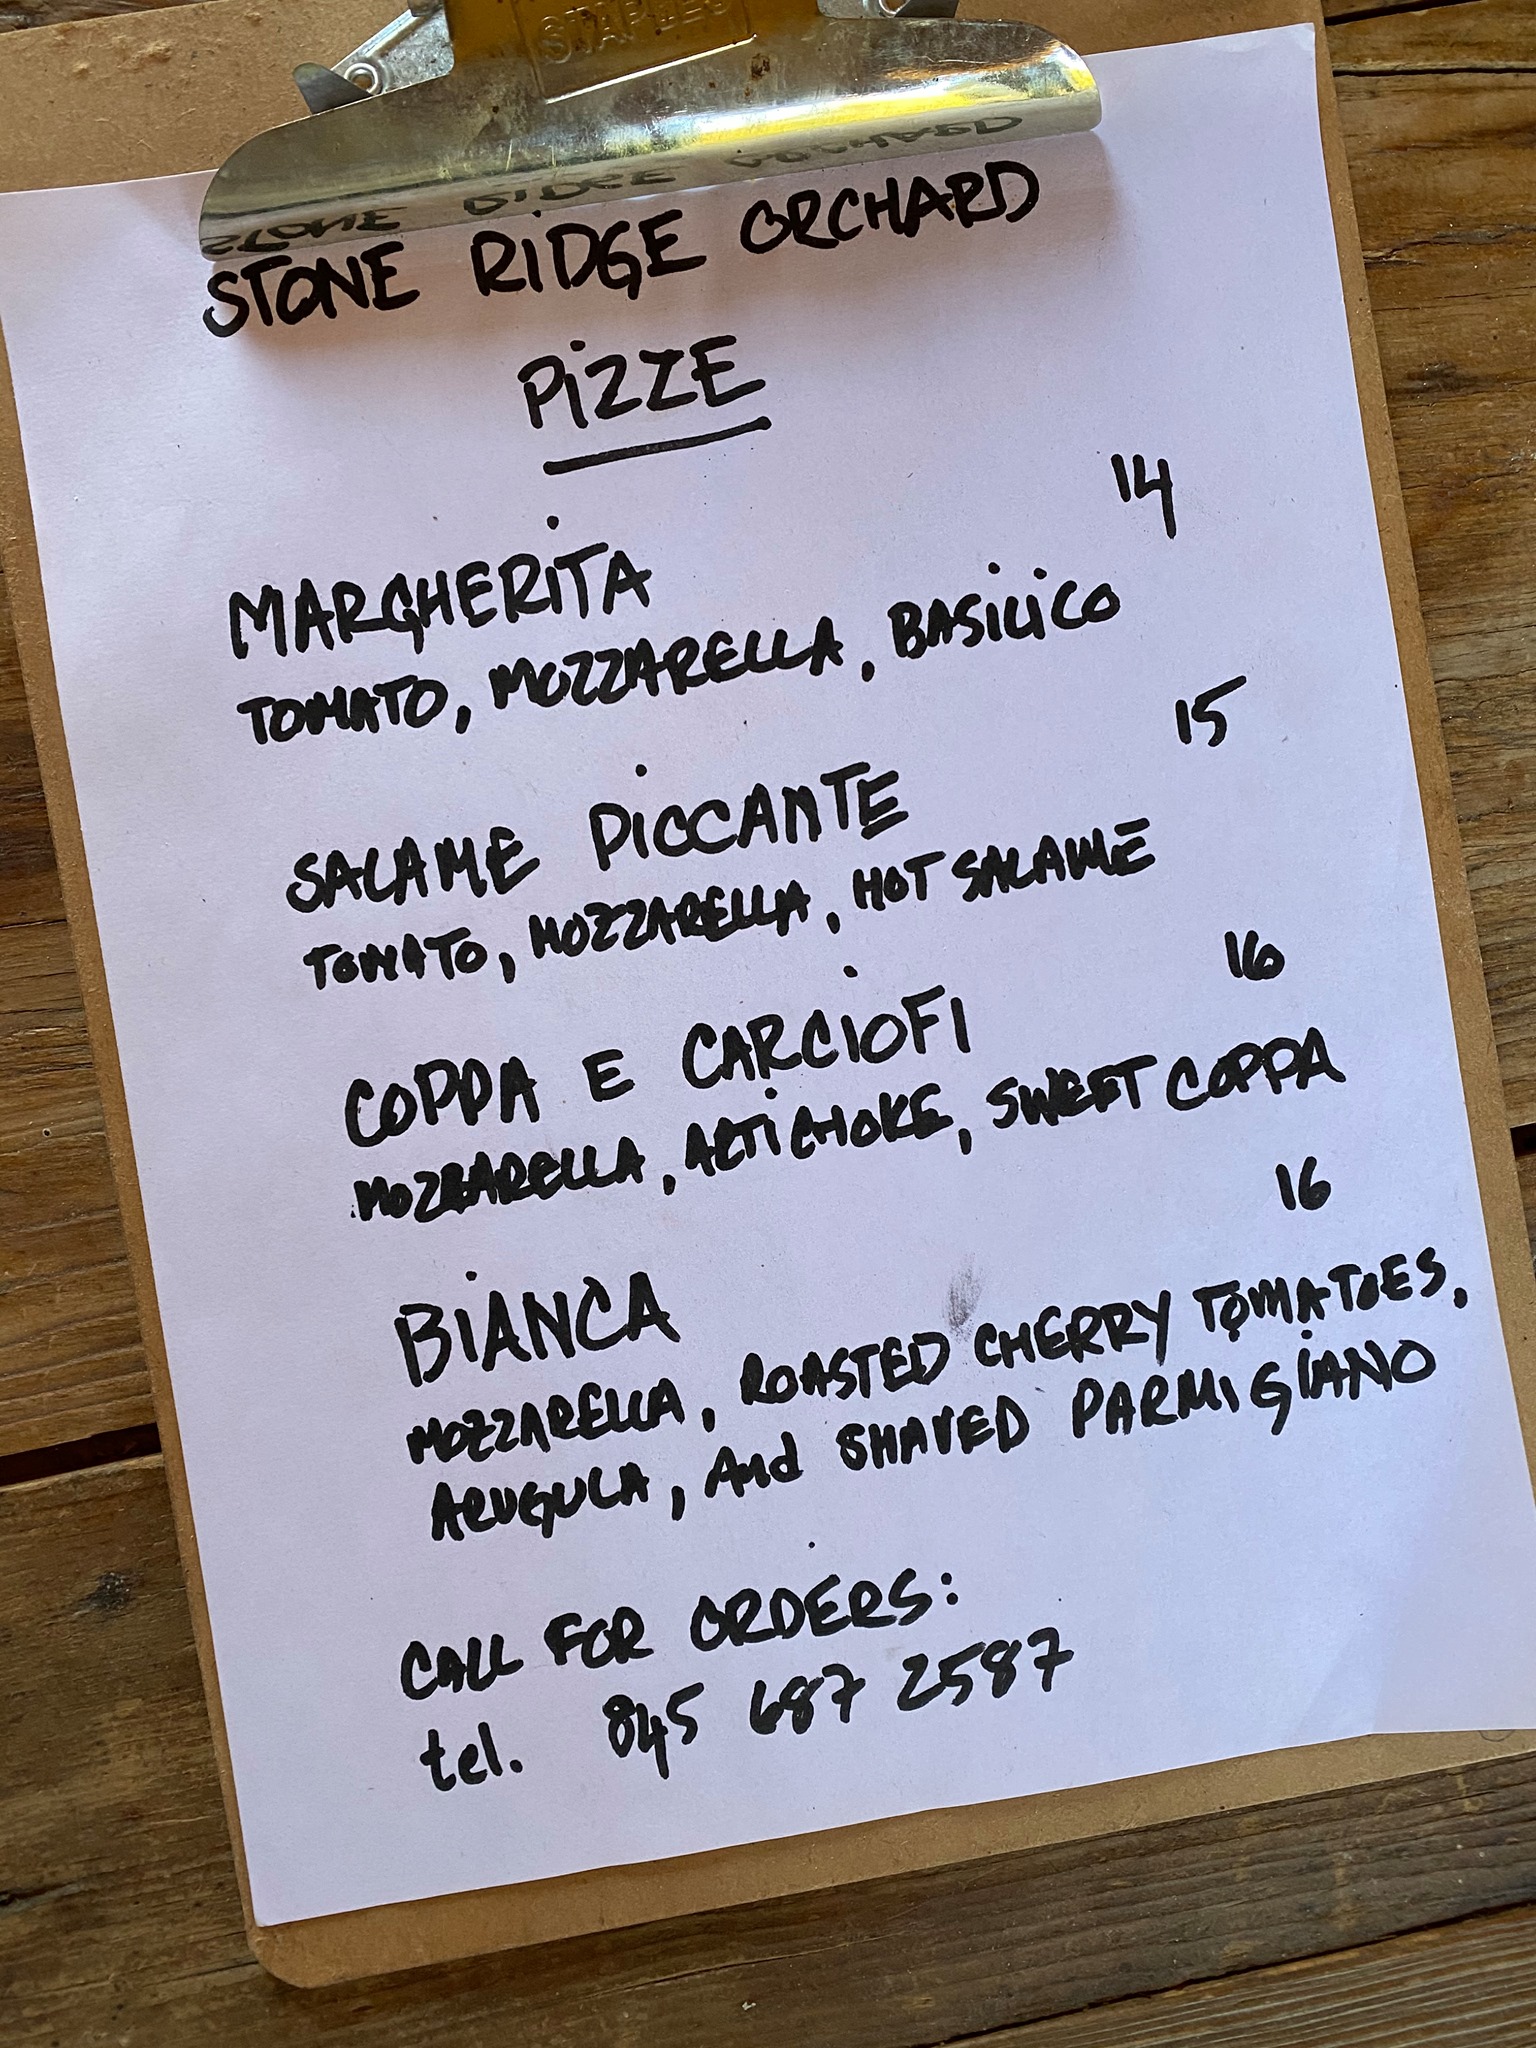 STAPLES
STONE RIDGE ORCHARD
PIZZE
14
MARGHERITA
TOMATO, MOZZARELLA, BASILICO
15
SALAME PICCANTE
TOMATO, MOZZARELLA, HOT SALAME
16
COPPA E CARCIOFI
MOZZARELLA, ARTICHOKE, SWEET COPPA
16
BIANCA
MOZZARELLA, ROASTED CHERRY TOMATOES,
ARUGULA, And SHAVED PARMIGIANO
CALL FOR ORDERS:
tel. 845 687 2587